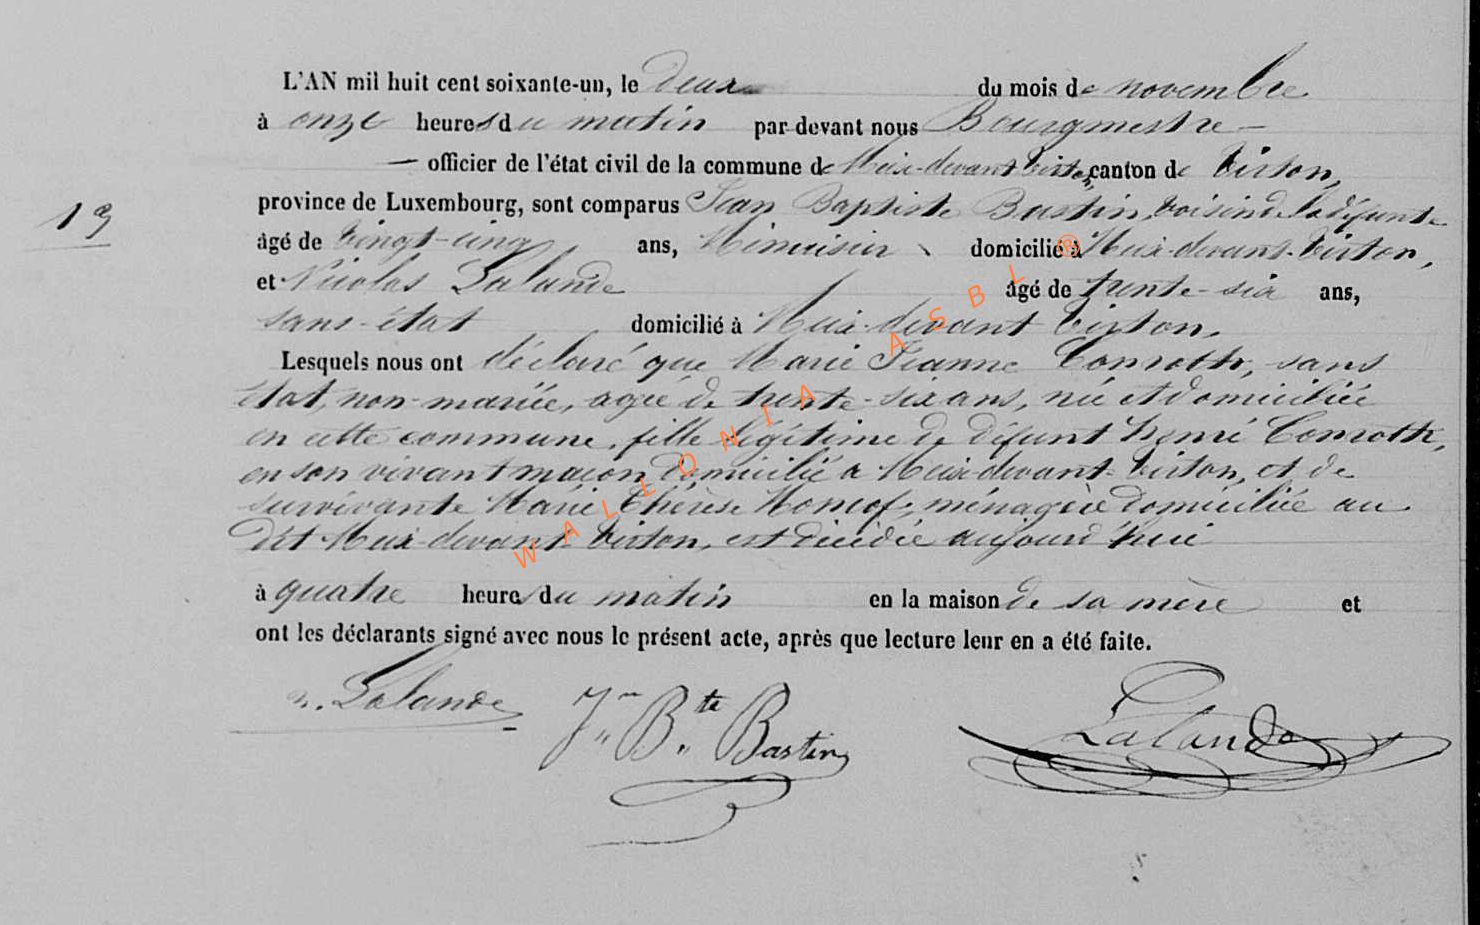 L'AN mil huit cent soixante-un, le deux du mois de novembre
à onze heures du matin par-devant nous Bourgmestre —
— officier de l'état civil de la commune de Meix-devant Virton, canton de Virton,
13
province de Luxembourg, sont comparus Jean Baptiste Bastin, voisin de la défunte
âgé de vingt-cinq ans, domicilié à Meix-devant-Virton,
et Nicolas Lalande âgé de trente-six ans,
sans-état domicilié à Meix-devant Virton.
Lesquels nous ont déclaré que Marie Jeanne Conroth, sans
état, non-mariée, agée de trente-six ans, née et domiciliée
en cette commune, fille légitime de défunt henri Conroth,
en son vivant maçon domicilié a Meix-devant-Virton, et de
survivante Marie Thérèse ménagère domiciliée au
dit Meix-devant-Virton, est décédée aujourd'hui
à quatre heures du matin en la maison de sa mère et
ont les déclarants signé avec nous le présent acte, après que lecture leur en a été faite.
n. Lalande Jn Bte Bastin Lalande
WALLONIA ASBL ®